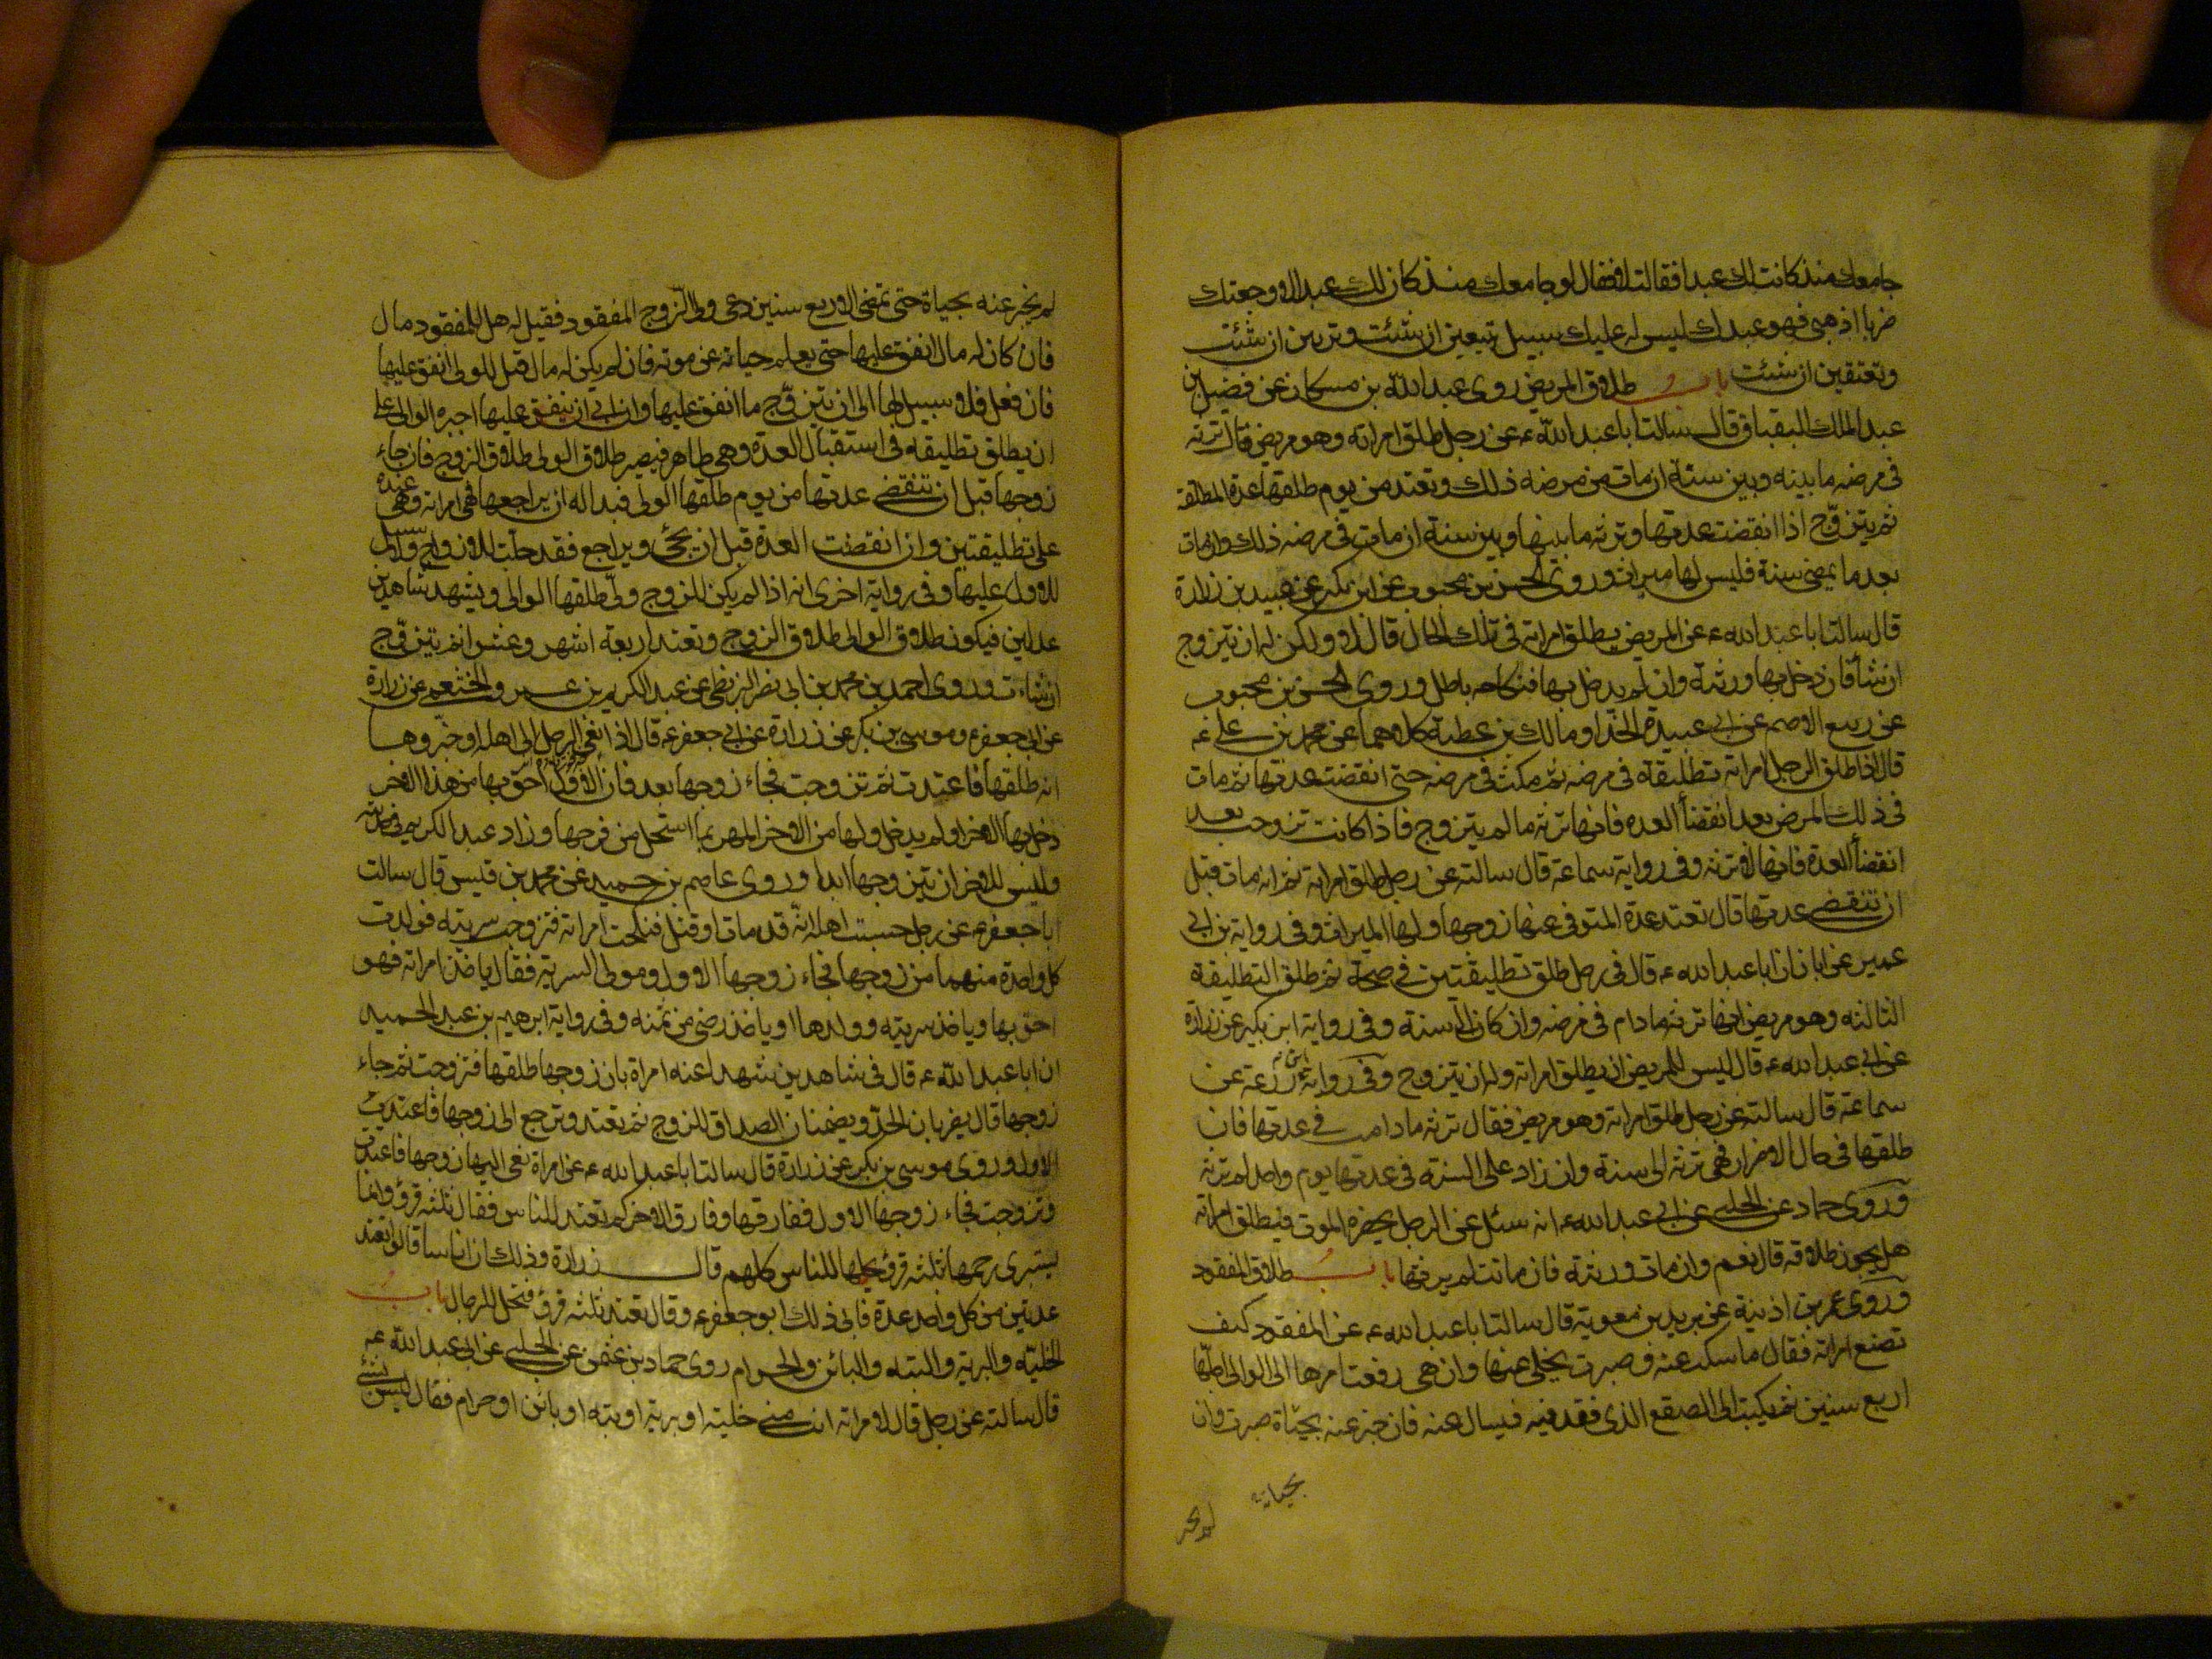 جامعك منذ كانت لك عبدا فقالت لا فقال لو جامعك منذ كان لك عبدا لاوجعتك
ضربا اذهبي فهو عبدك ليس له عليك سبيل تبيعين ان شئت وترقين ان شئت
وتعتقين ان شئت باب طلاق المريض روى عبد الله بن مسكان عن فضيل بن
عبد الملك البقباق قال سالت ابا عبد الله ع عن رجل طلق امراته وهو مريض قال ترثه
في مرضه ما بينه وبين سنة ان مات من مرضه ذلك وتعتد من يوم طلقها عدة المطلقة
ثم يتزوج اذا انقضت عدتها وترثه ما بينها وبين سنة ان مات في مرضه ذلك وان مات
بعد ما يمضي سنة فليس لها ميراث وروى الحسن بن محبوب عن ابن بكير عن عبيد بن زرارة
قال سالت ابا عبد الله ع عن المريض يطلق امراته في تلك الحال قال لا ولكن له ان يتزوج
ان شاء فان دخل بها ورثته وان لم يدخل بها فنكاحه باطل وروى الحسن بن محبوب
عن ربيع الاصم عن ابي عبيدة الحذا ومالك بن عطية كلاهما عن محمد بن علي ع
قال اذا طلق الرجل امراته تطليقة في مرضه ثم مكث في مرضه حتى انقضت عدتها ثم مات
في ذلك المرض بعد انقضأ العده فانها ترثه ما لم يتزوج فاذا كانت تزوجت بعد
انقضأ العدة فانها لا ترثه وفي رواية سماعة قال سالته عن رجل طلق امراته ثم انه مات قبل
ان تنقضي عدتها قال تعتد عدة المتوفى عنها زوجها ولها الميراث وفي رواية بن ابي
عمير عن ابان ان ابا عبد الله ع قال في رجل طلق تطليقتين في صحة ثم طلق التطليقة
الثالثه وهو مريض انها ترثه ما دام في مرضه وان كان الى سنة وفي رواية ابن بكير عن زرارة
عن ابي عبد الله ع قال ليس للمريض ان يطلق امراته وله ان يتزوج وفي رواية زرعة عن
سماعة قال سالته عن رجل طلق امراته وهو مريض فقال ترثه ما دامت في عدتها فان
طلقها في حال الاضرار فهي ترثه الى سنة وان زاد على السنة في عدتها يوم واحد لم ترثه
وروى حماد عن الحلبي عن ابي عبد الله ع انه سئل عن الرجل يحضره الموت فيطلق امراته
هل يجوز طلاقه قال نعم وان مات ورثته فان ماتت لم يرثها باب طلاق المفقود
وروى عمر بن اذينة عن بريد بن معوية قال سالت ابا عبد الله ع عن المفقود كيف
تصنع امراته فقال ما سكت عنه وصبرت يخلى عنها وان هي رفعت امرها الى الوالي اجلها
اربع سنين ثم يكتب الى الصقع الذي فقد فيه فيسال عنه فان خبر عنه بحياة صبرت وان
بحياته
لم يخبر
لم يخبر عنه بحياة حتى تمضي الاربع سنين دعى ولي الزوج المفقود فقيل له هل للمفقود مال
فان كان له مال انفق عليها حتى يعلم حياته عن موته فان لم يكن له مال قيل للولي انفق عليها
فان فعل فلا سبيل لها الى ان يتزوج ما انفق عليها وان ابي ان ينفق عليها اجبره الوالي على
ان يطلق تطليقة في استقبال العدة وهي طاهر فيصير طلاق الولي طلاق الزوج فان جاء
زوجها قبل ان تنقضي عدتها من يوم طلقها الولي فبدا له ان يراجعها فهي امراته وهي عنده
على تطليقتين وان انقضت العدة قبل ان يجئ ويراجع فقد حلت للازواج ولا سبيل
للاول عليها وفي رواية اخرى انه اذا لم يكن للزوج ولي طلقها الوالي ويشهد شاهدين
عدلين فيكون طلاق الوالي طلاق الزوج وتعتد اربعة اشهر وعشرا ثم يتزوج
ان شاءت وروى احمد بن محمد بن ابي نصر البزنطي عن عبد الكريم بن عمرو الخثعمي عن زرارة
عن ابي جعفر ع وموسى بن بكر عن زرارة عن ابي جعفر ع قال اذا نعي الرجل الى اهله او خبروها
انه طلقها فاعتدت ثم تزوجت فجاء زوجها بعد فان الاول احق بها من هذا الاخر
دخل بها الاخر او لم يدخل ولها من الاخر المهر بما استحل من فرجها وزاد عبد الكريم في حديثه
وليس للاخر ان يتزوجها ابدا وروى عاصم بن حميد عن محمد بن قيس قال سالت
ابا جعفر ع عن رجل حسبت اهله انه قد مات او قتل فنكحت امراته فتزوجت سريته فولدت
كل واحدة منهما من زوجها فجاء زوجها الاول ومولى السرية فقال ياخذ امراته فهو
احق بها وياخذ سريته وولدها او ياخذ رضى من ثمنه وفي رواية ابرهيم بن عبد الحميد
ان ابا عبد الله ع قال في شاهدين شهدا عند امراة بان زوجها طلقها فتزوجت ثم جاء
زوجها قال يضربان الحد ويضمنان الصداق للزوج ثم تعتد وترجع الى زوجها فاعتدت
الاول وروى موسى بن بكر عن زرارة قال سالت ابا عبد الله ع عن امراة نعي اليها زوجها فاعتدت
وتزوجت فجاء زوجها الاول ففارقها وفارق الاخر كم تعتد للناس فقال ثلثة قروء وانما
يستبرى رحمها بثلثه قروء يحلها للناس كلهم قال زرارة وذلك ان اناسا قالوا تعتد
عدتين من كل واحد عدة فابى ذلك ابو جعفر ع وقال تعتد ثلثة قروء فتحل للرجال باب
الخلية والبرية والبتة والبائن والحرام روى حماد بن عثمن عن الحلبي عن ابي عبد الله ع
قال سالته عن رجل قال لامراته انت مني خلية او برية او بتة او بائن او حرام فقال ليس بشئ